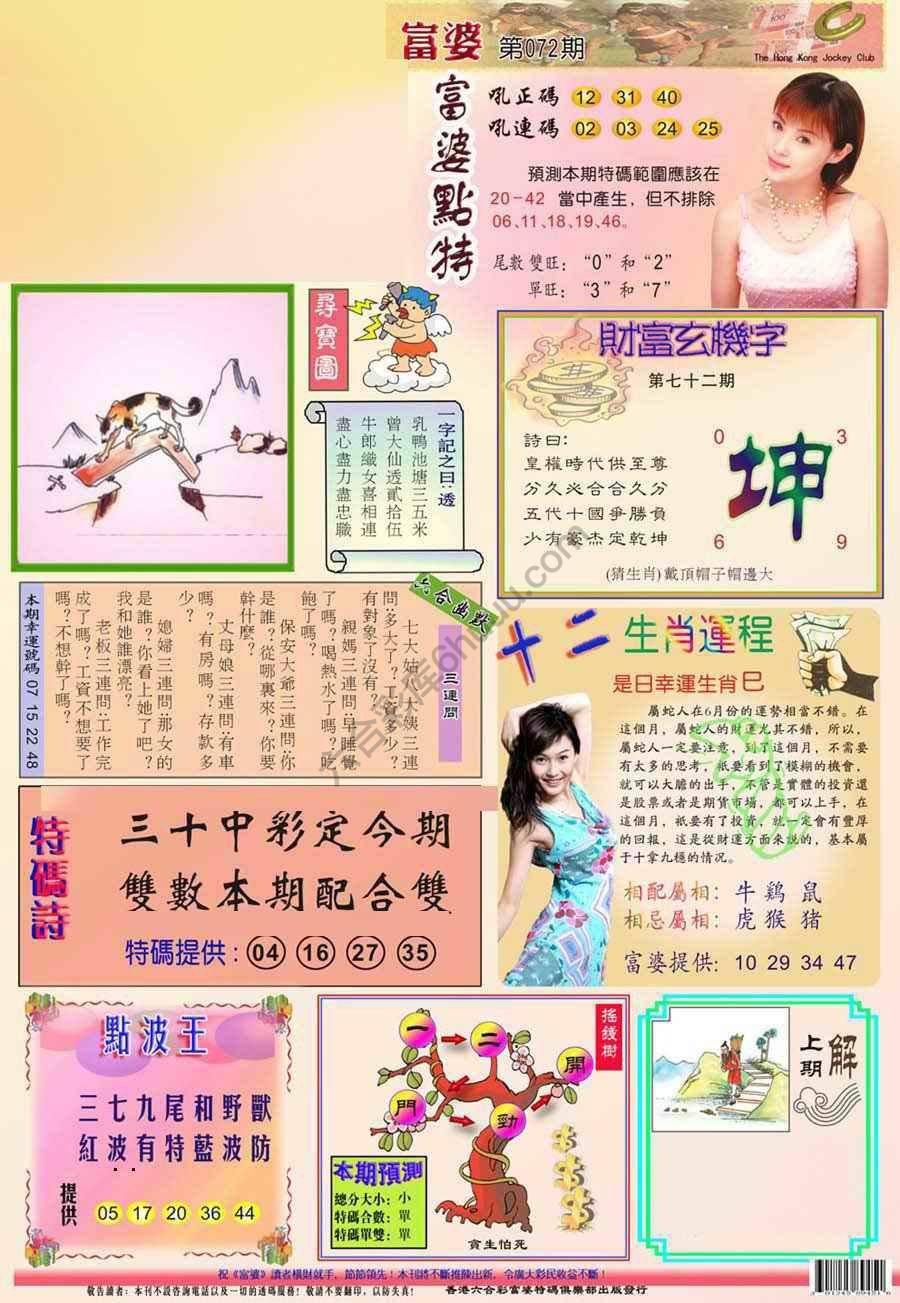 富婆 第072期
The Hong Kong Jockey Club
富婆點特
吼正碼 12 31 40
吼連碼 02 03 24 25
預測本期特碼範圍應該在
20-42 當中產生，但不排除
06、11、18、19、46。
尾數雙旺：“0”和“2”
單旺：“3”和“7”
尋寶圖
一字記之曰：透
乳鴨池塘三五米
曾大仙透貳拾伍
牛郎織女喜相連
盡心盡力盡忠職
財富玄機字
第七十二期
詩曰：
皇權時代供至尊
分久必合合久分
五代十國爭勝負
少有豪杰定乾坤
0 3
坤
6 9
(猜生肖)戴頂帽子帽邊大
六合幽默
三連問
七大姑八大姨三連
問：多大了？工資多少？
有對象了沒有？
親媽三連問：早睡覺
了嗎？喝熱水了嗎？吃
飽了嗎？
保安大爺三連問：你
是誰？從哪裏來？你要
幹什麼？
丈母娘三連問：有車
嗎？有房嗎？存款多
少？
媳婦三連問：那女的
是誰？你看上她了吧？
我和她誰漂亮？
老板三連問：工作完
成了嗎？工資不想要了
嗎？不想幹了嗎？
本期幸運號碼 07 15 22 48
十二生肖運程
是日幸運生肖巳
屬蛇人在6月份的運勢相當不錯。在
這個月，屬蛇人的財運尤其不錯，所以，
屬蛇人一定要注意，到了這個月，不需要
有太多的思考，衹要看到了模糊的機會，
就可以大膽的出手，不管是實體的投資還
是股票或者是期貨市場，都可以上手，在
這個月，衹要有了投資，就一定會有豐厚
的回報，這是從財運方面來説的，基本屬
于十拿九穩的情况。
相配屬相：牛 鷄 鼠
相忌屬相：虎 猴 猪
富婆提供：10 29 34 47
特碼詩
三十中彩定今期
雙數本期配合雙
特碼提供：04 16 27 35
點波王
三七九尾和野獸
紅波有特藍波防
提供 05 17 20 36 44
搖錢樹
一 二 開
門 勁
本期預測
總分大小：小
特碼合數：單
特碼單雙：單
貪生怕死
上期解
祝《富婆》讀者橫財就手，節節領先！本刊將不斷推陳出新，令廣大彩民收益不斷！
敬告讀者：本刊不設咨詢電話以及一切的透碼服務！敬請不要翻印，以防失真！ 香港六合彩富婆特碼俱樂部出版發行